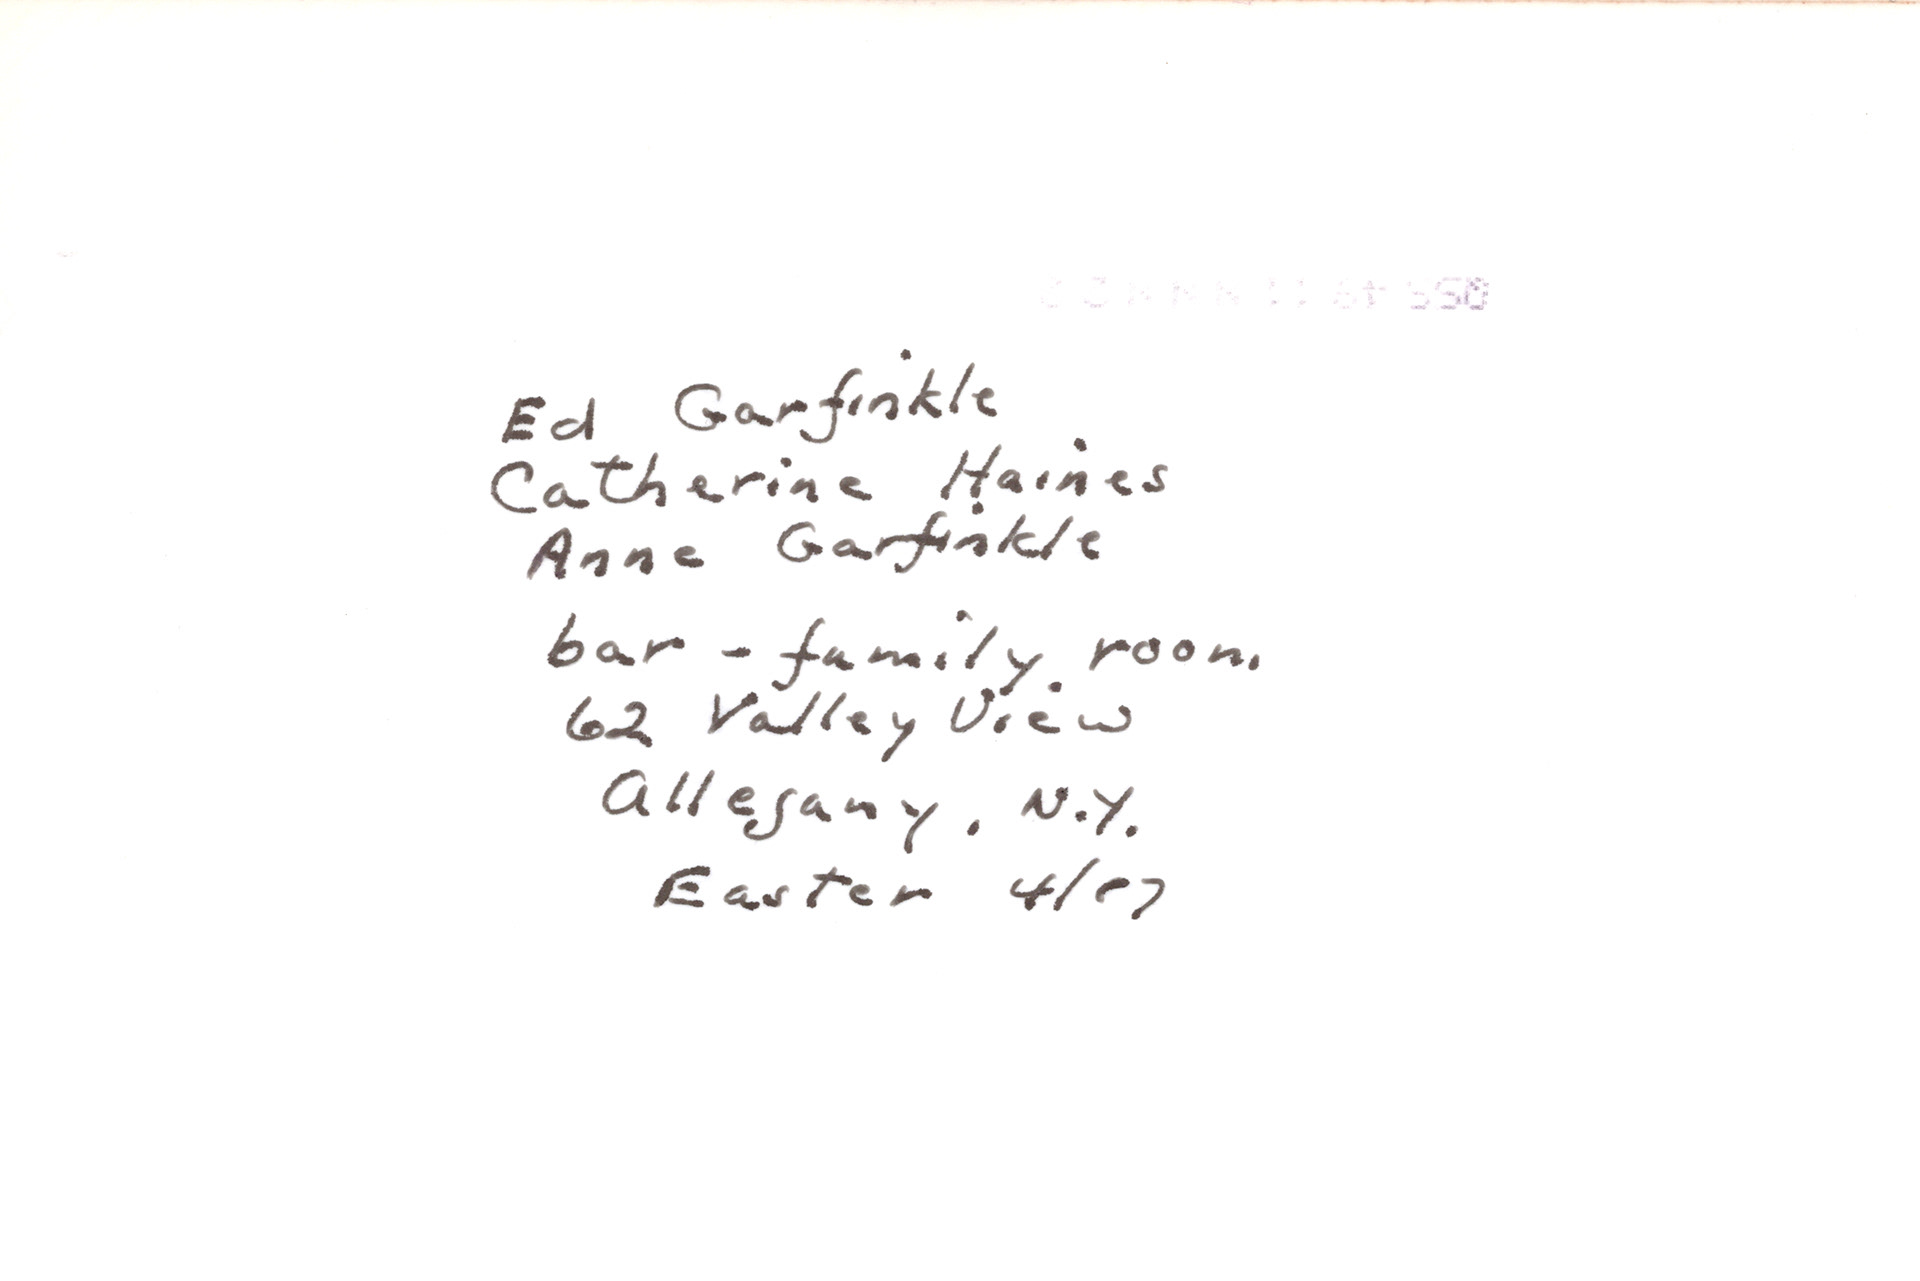 Ed Garfinkle
Catherine Haines
Anne Garfinkle
bar - family room.
62 Valley View
Allegany, N.Y.
Easter